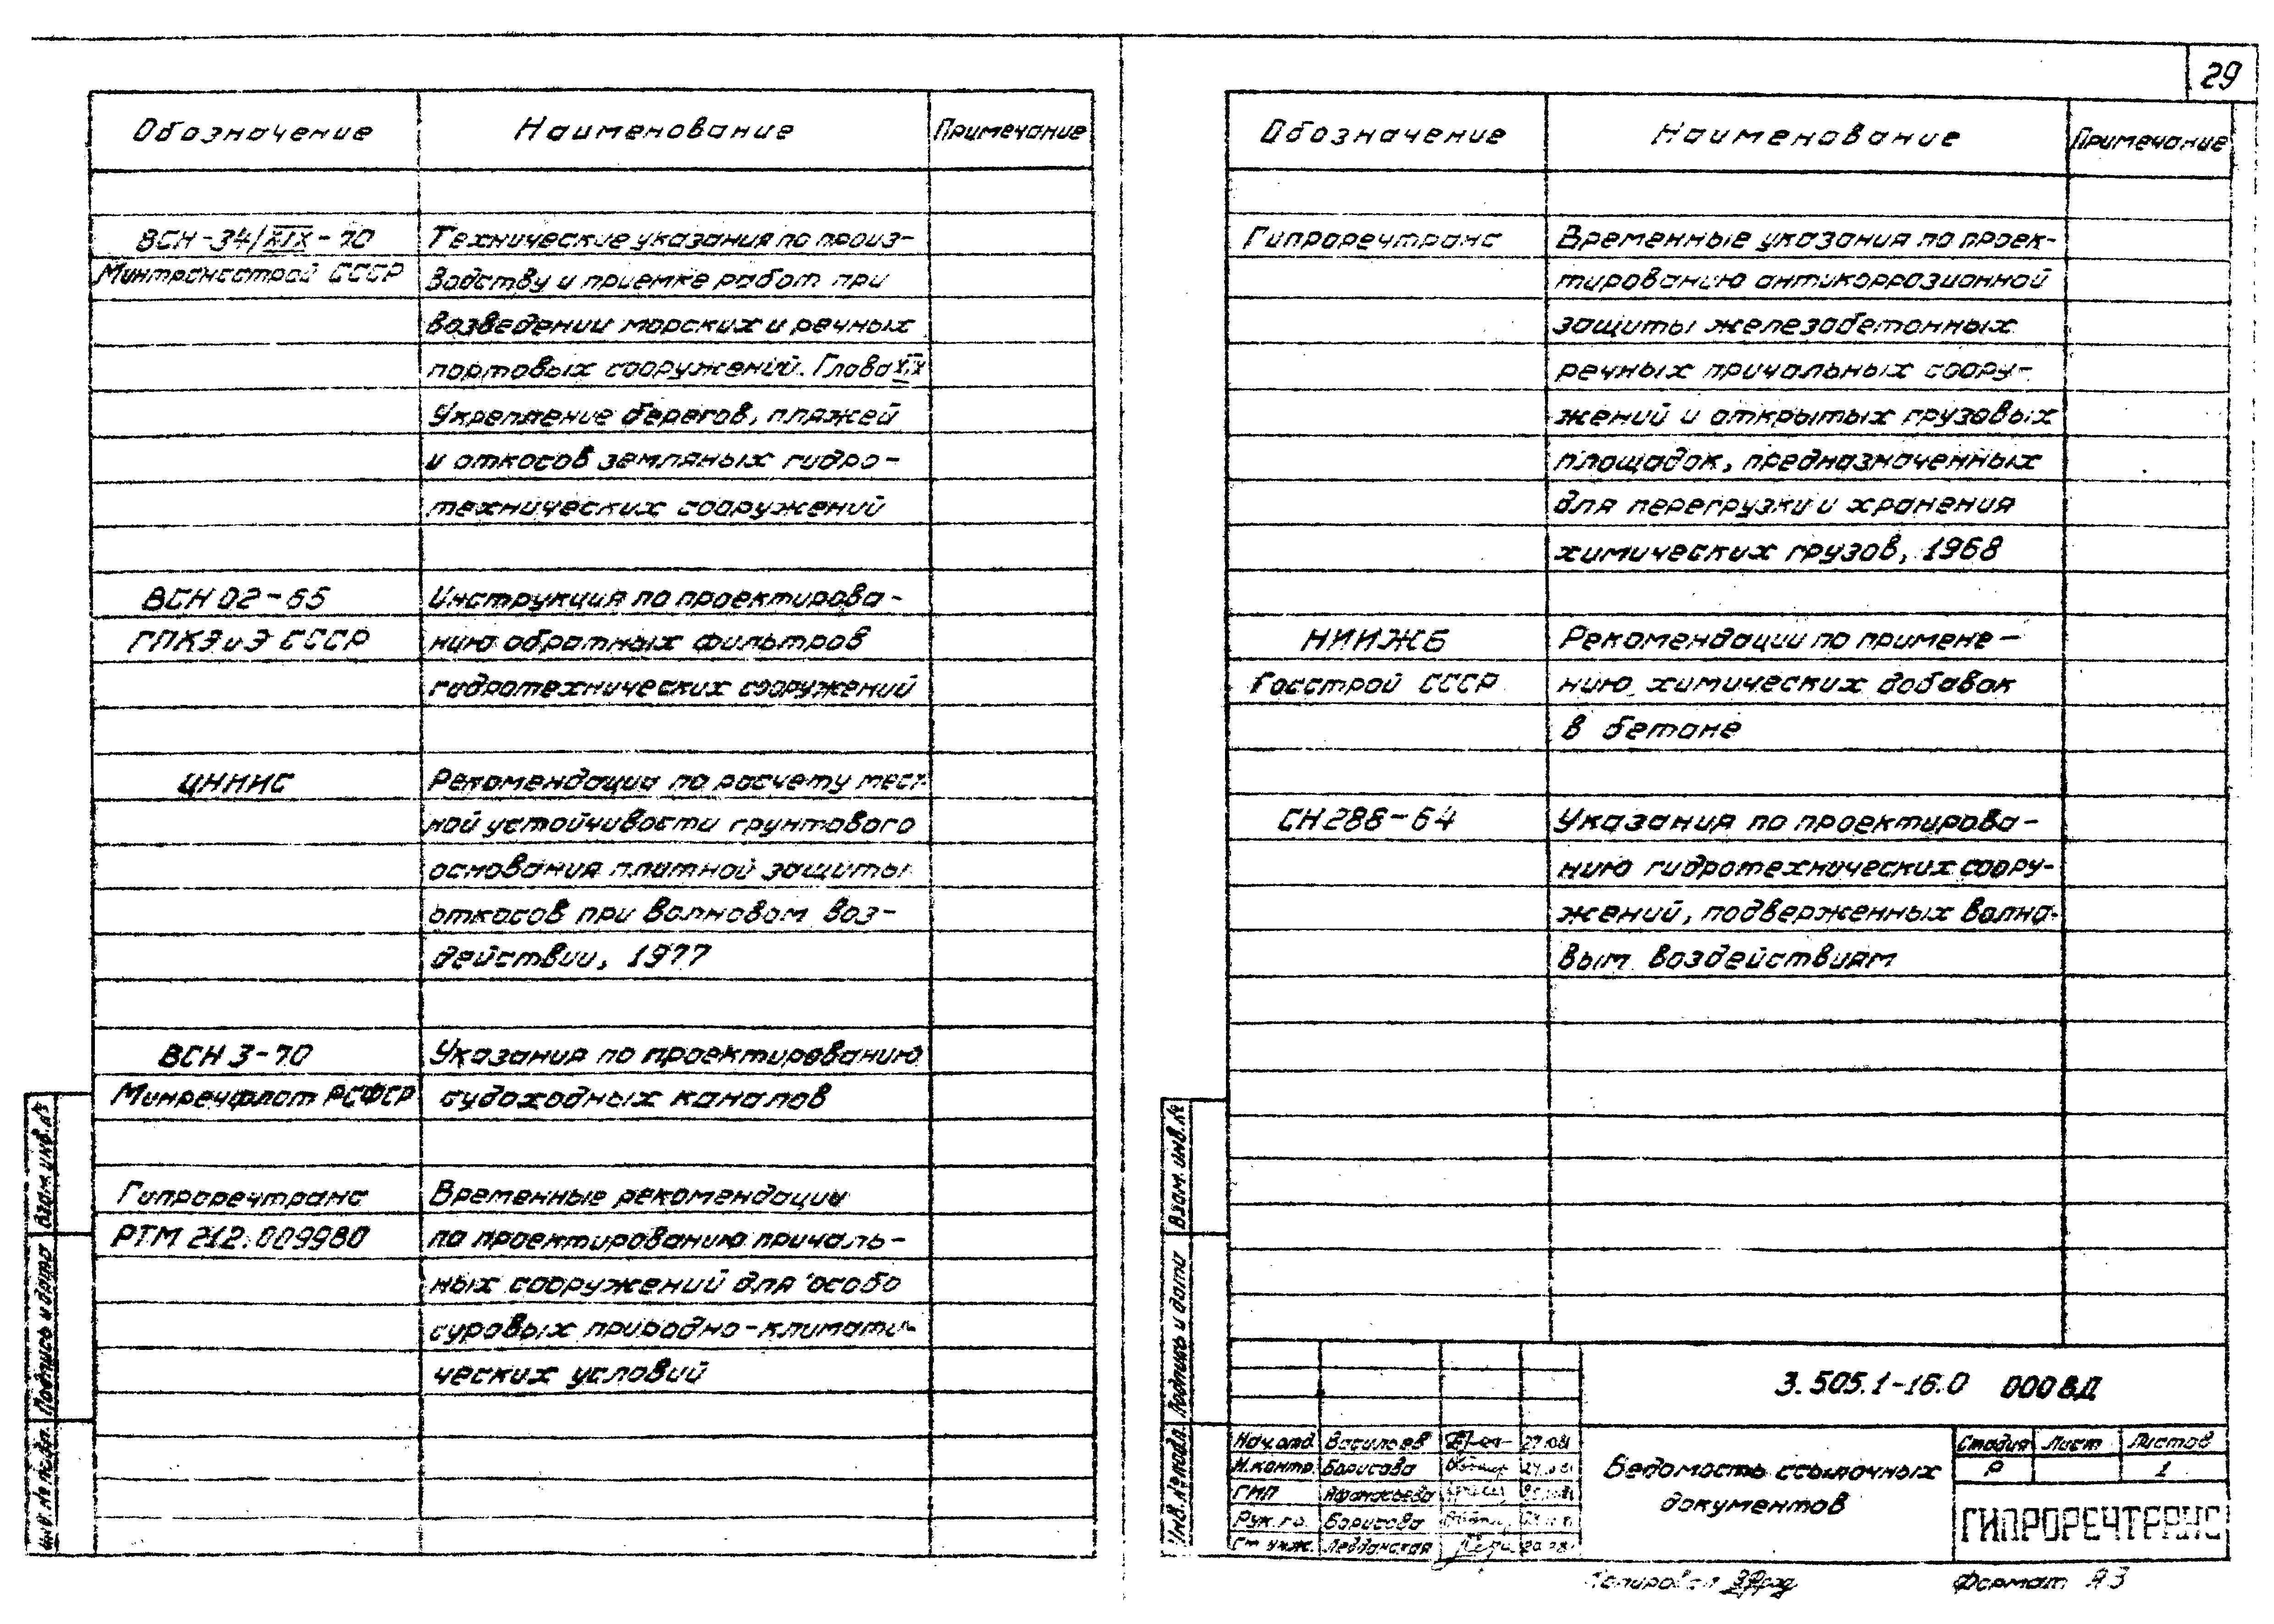 29
Обозначение Наименование Примечание
ВСН-34/XIX-70 Технические указания по произ-
Минтрансстрой СССР водству и приемке работ при
возведении морских и речных
портовых сооружений. Глава XIX
Укрепление берегов, пляжей
и откосов земляных гидро-
технических сооружений
ВСН 02-65 Инструкция по проектирова-
ГПКЭиЭ СССР нию обратных фильтров
гидротехнических сооружений
ЦНИИС Рекомендации по расчету мест-
ной устойчивости грунтового
основания плитной защиты
откосов при волновом воз-
действии, 1977
ВСН 3-70 Указания по проектированию
Минречфлот РСФСР судоходных каналов
Гипроречтранс Временные рекомендации
РТМ 212.009980 по проектированию причаль-
ных сооружений для особо
суровых природно-климати-
ческих условий
Взам. инв. №
Подпись и дата
Инв. № подл.
Обозначение Наименование Примечание
Гипроречтранс Временные указания по проек-
тированию антикоррозионной
защиты железобетонных
речных причальных соору-
жений и открытых грузовых
площадок, предназначенных
для перегрузки и хранения
химических грузов, 1968
НИИЖБ Рекомендации по примене-
Госстрой СССР нию химических добавок
в бетоне
СН 288-64 Указания по проектирова-
нию гидротехнических соору-
жений, подверженных волно-
вым воздействиям
Взам. инв. №
Подпись и дата
Инв. № подл.
3.505.1-16.0 000ВД
Нач. отд. Васильев 27.081
Н.контр. Борисова
ГИП Афанасьева
Рук. гр. Борисова
Ст. инж.
Ведомость ссылочных
документов
Стадия Лист Листов
Р 1
ГИПРОРЕЧТРАНС
Копировал
Формат А3